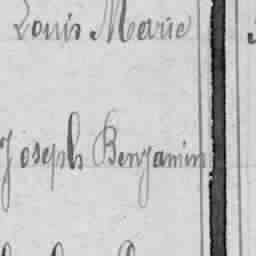 Louis Marie
Joseph Benjamin